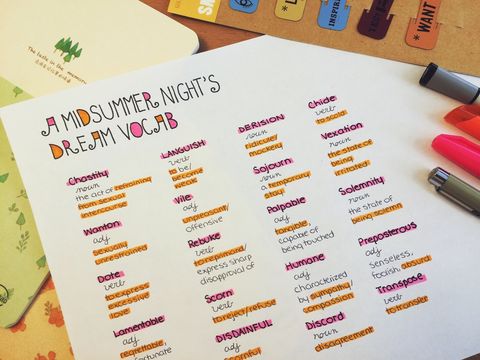 The taste in the memory
INSPIR
* WANT
A MIDSUMMER NIGHT'S
DREAM VOCAB
Chastity
noun
the act of refraining
from sexual
intercourse
Wanton
adj
sexually
unrestrained
Dote
verb
to express
excessive
love
Lamentable
adj
regrettable,
LANGUISH
verb
to be/
become
weak
Vile
adj
unpleasant/
offensive
Rebuke
verb
to reprimand/
express sharp
disapproval of
Scorn
verb
to reject/refuse
DISDAINFUL
adj
DERISION
noun
ridicule/
mockery
Sojourn
noun
a temporary
stay
Palpable
adj
tangible,
capable of
being touched
Humane
adj
characterized
by sympathy/
compassion
Discord
noun
disagreement
Chide
verb
to scold
Vexation
noun
the state of
being
irritated
Solemnity
noun
the state of
being solemn
Preposterous
adj
senseless,
foolish, absurd
Transpose
verb
to transfer